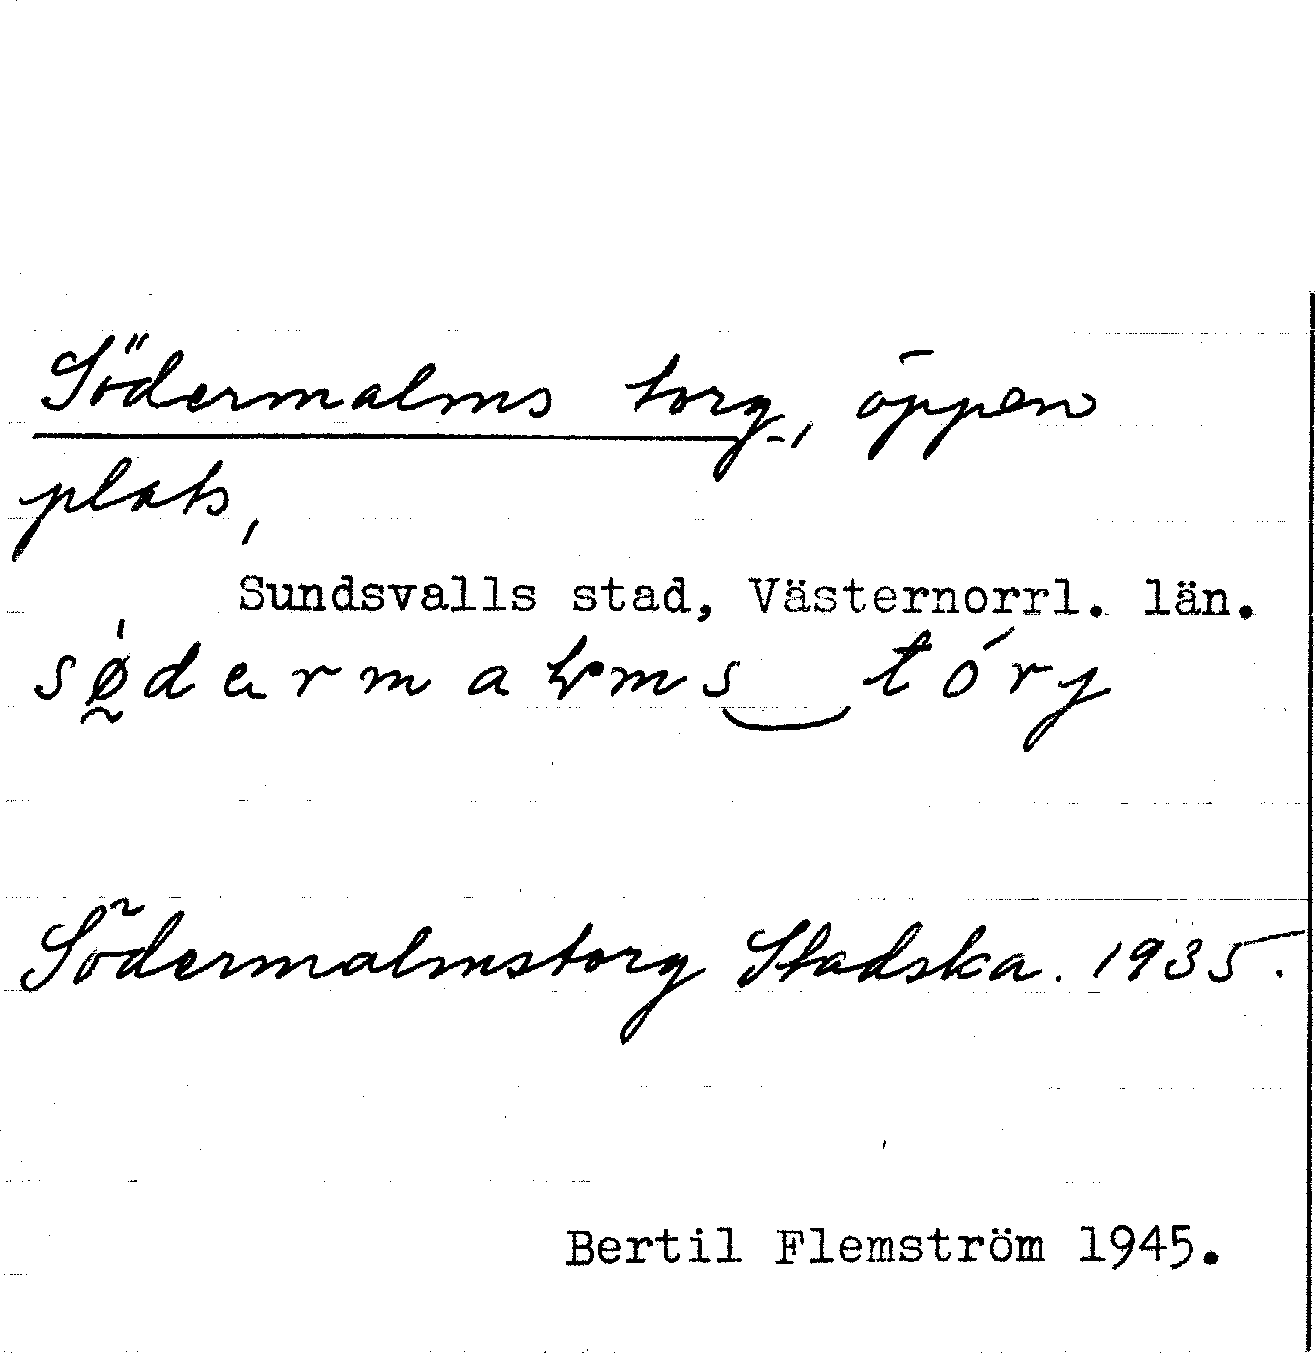 Södermalms torg, öppen
plats,
Sundsvalls stad, Västernorrl. län.
sødarmaləms‿tórj
Södermalmstorg Stadska. 1935.
Bertil Flemström 1945.